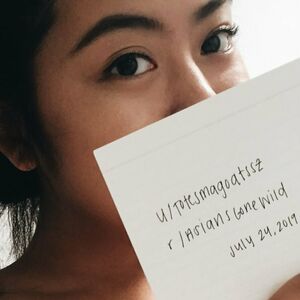 u/Totesmagoatssz
r/AsiansGoneWild
July 24, 2019